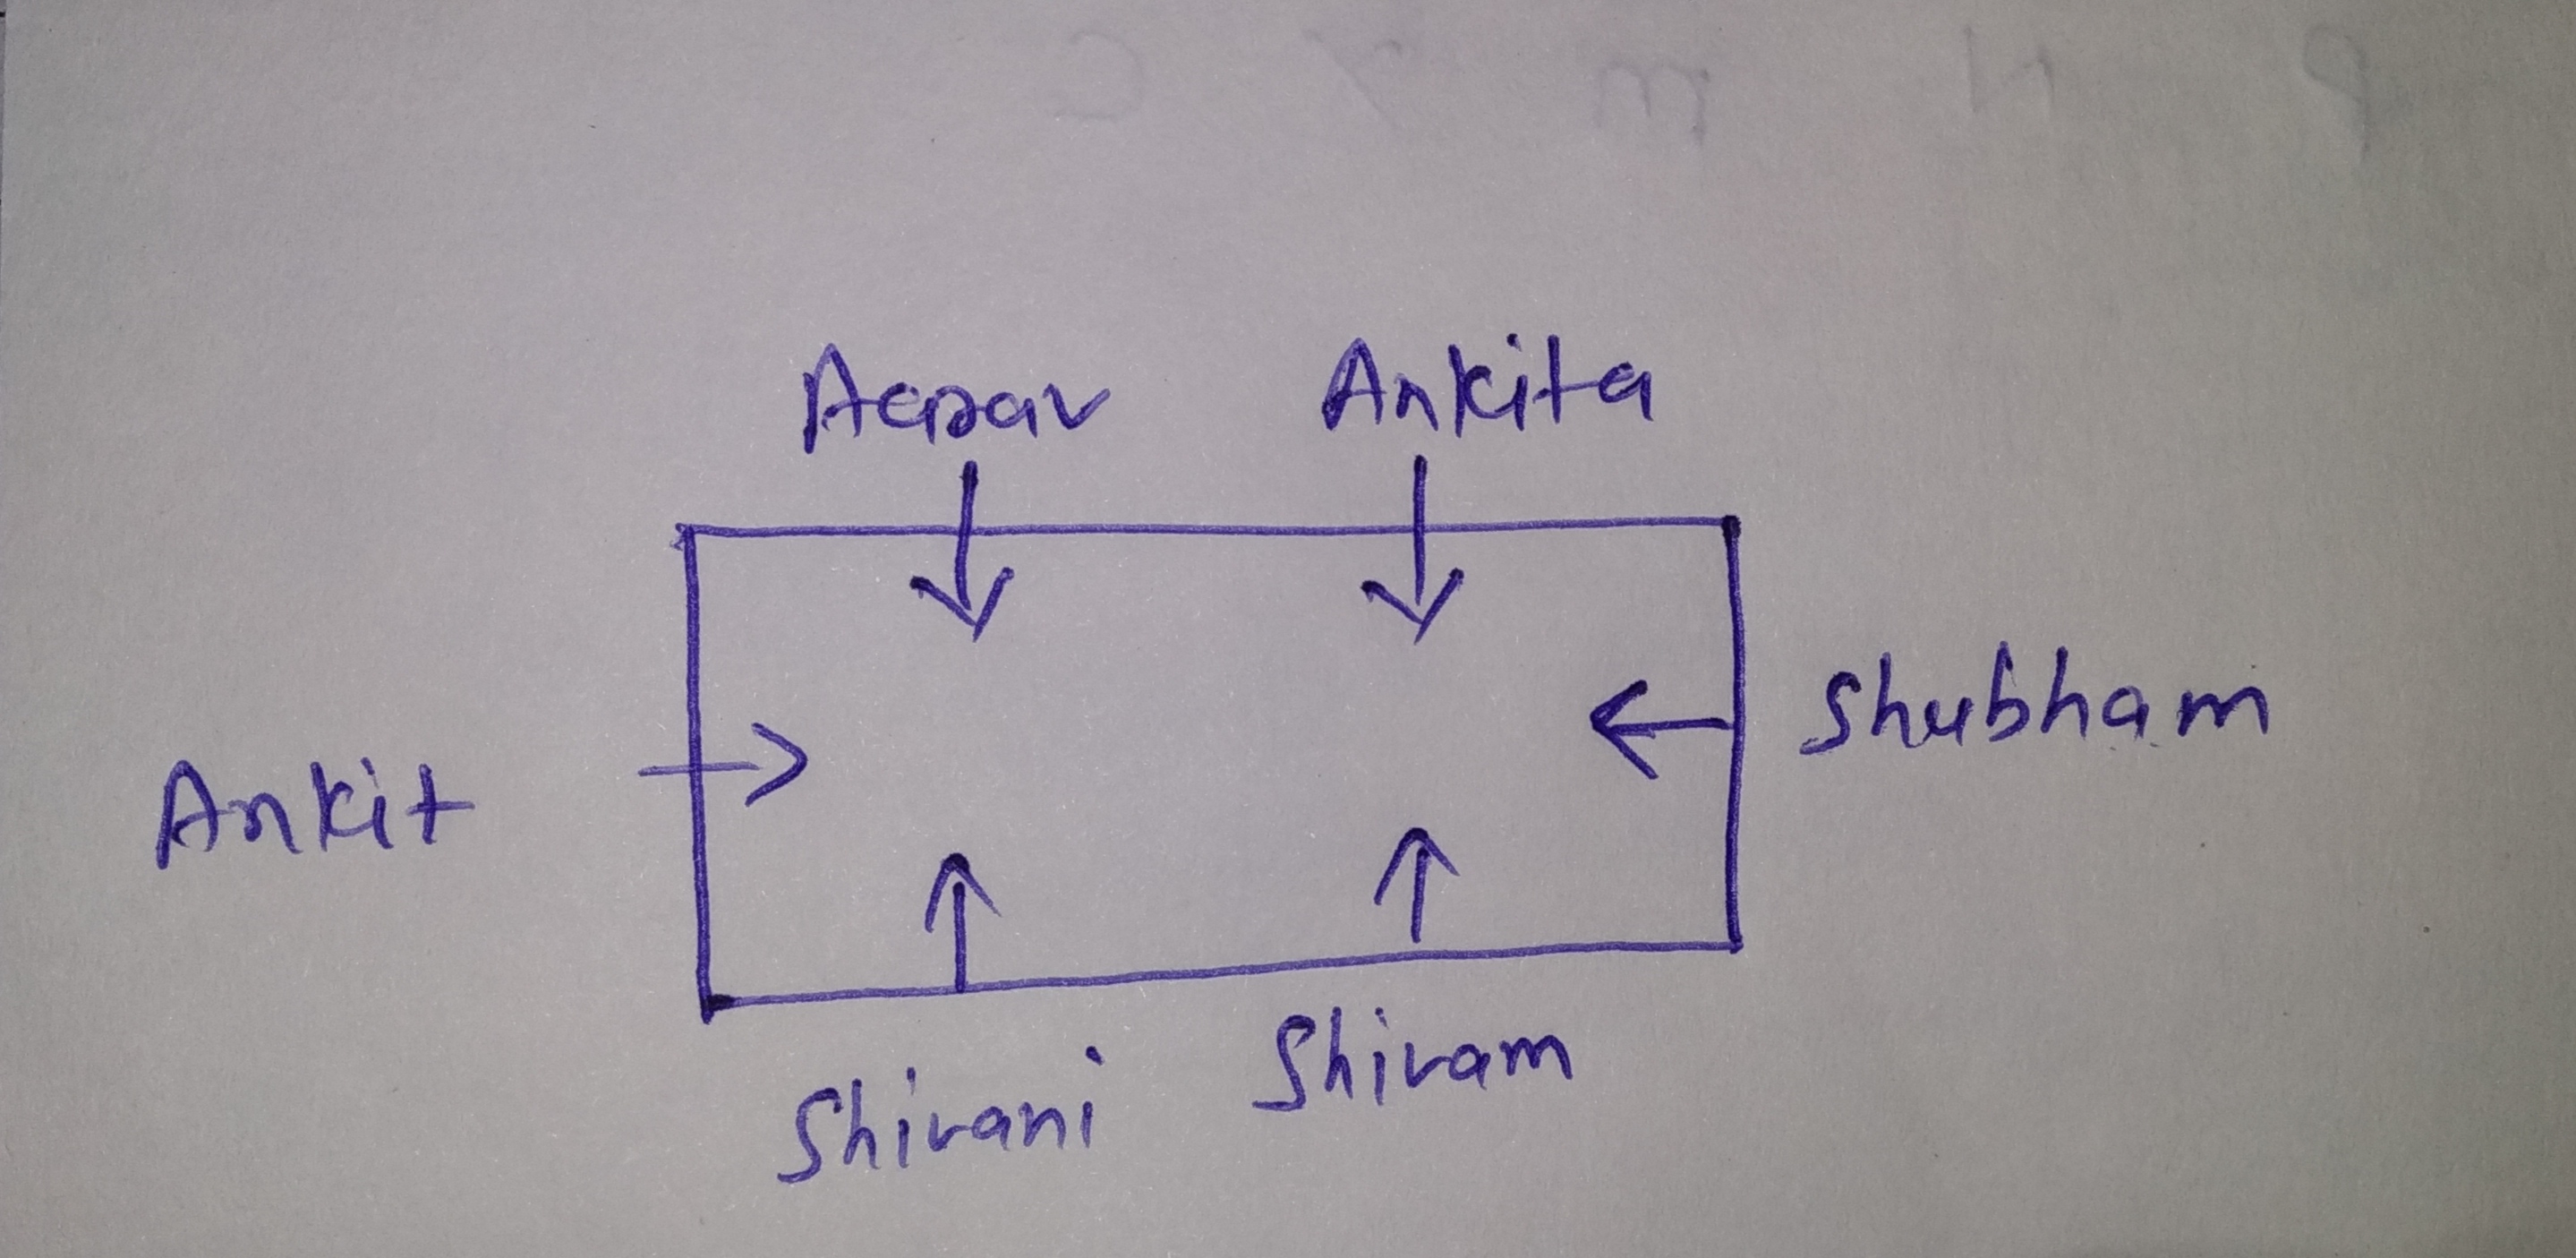 Aarav Ankita
Shubham
Ankit
Shivam
Shivani